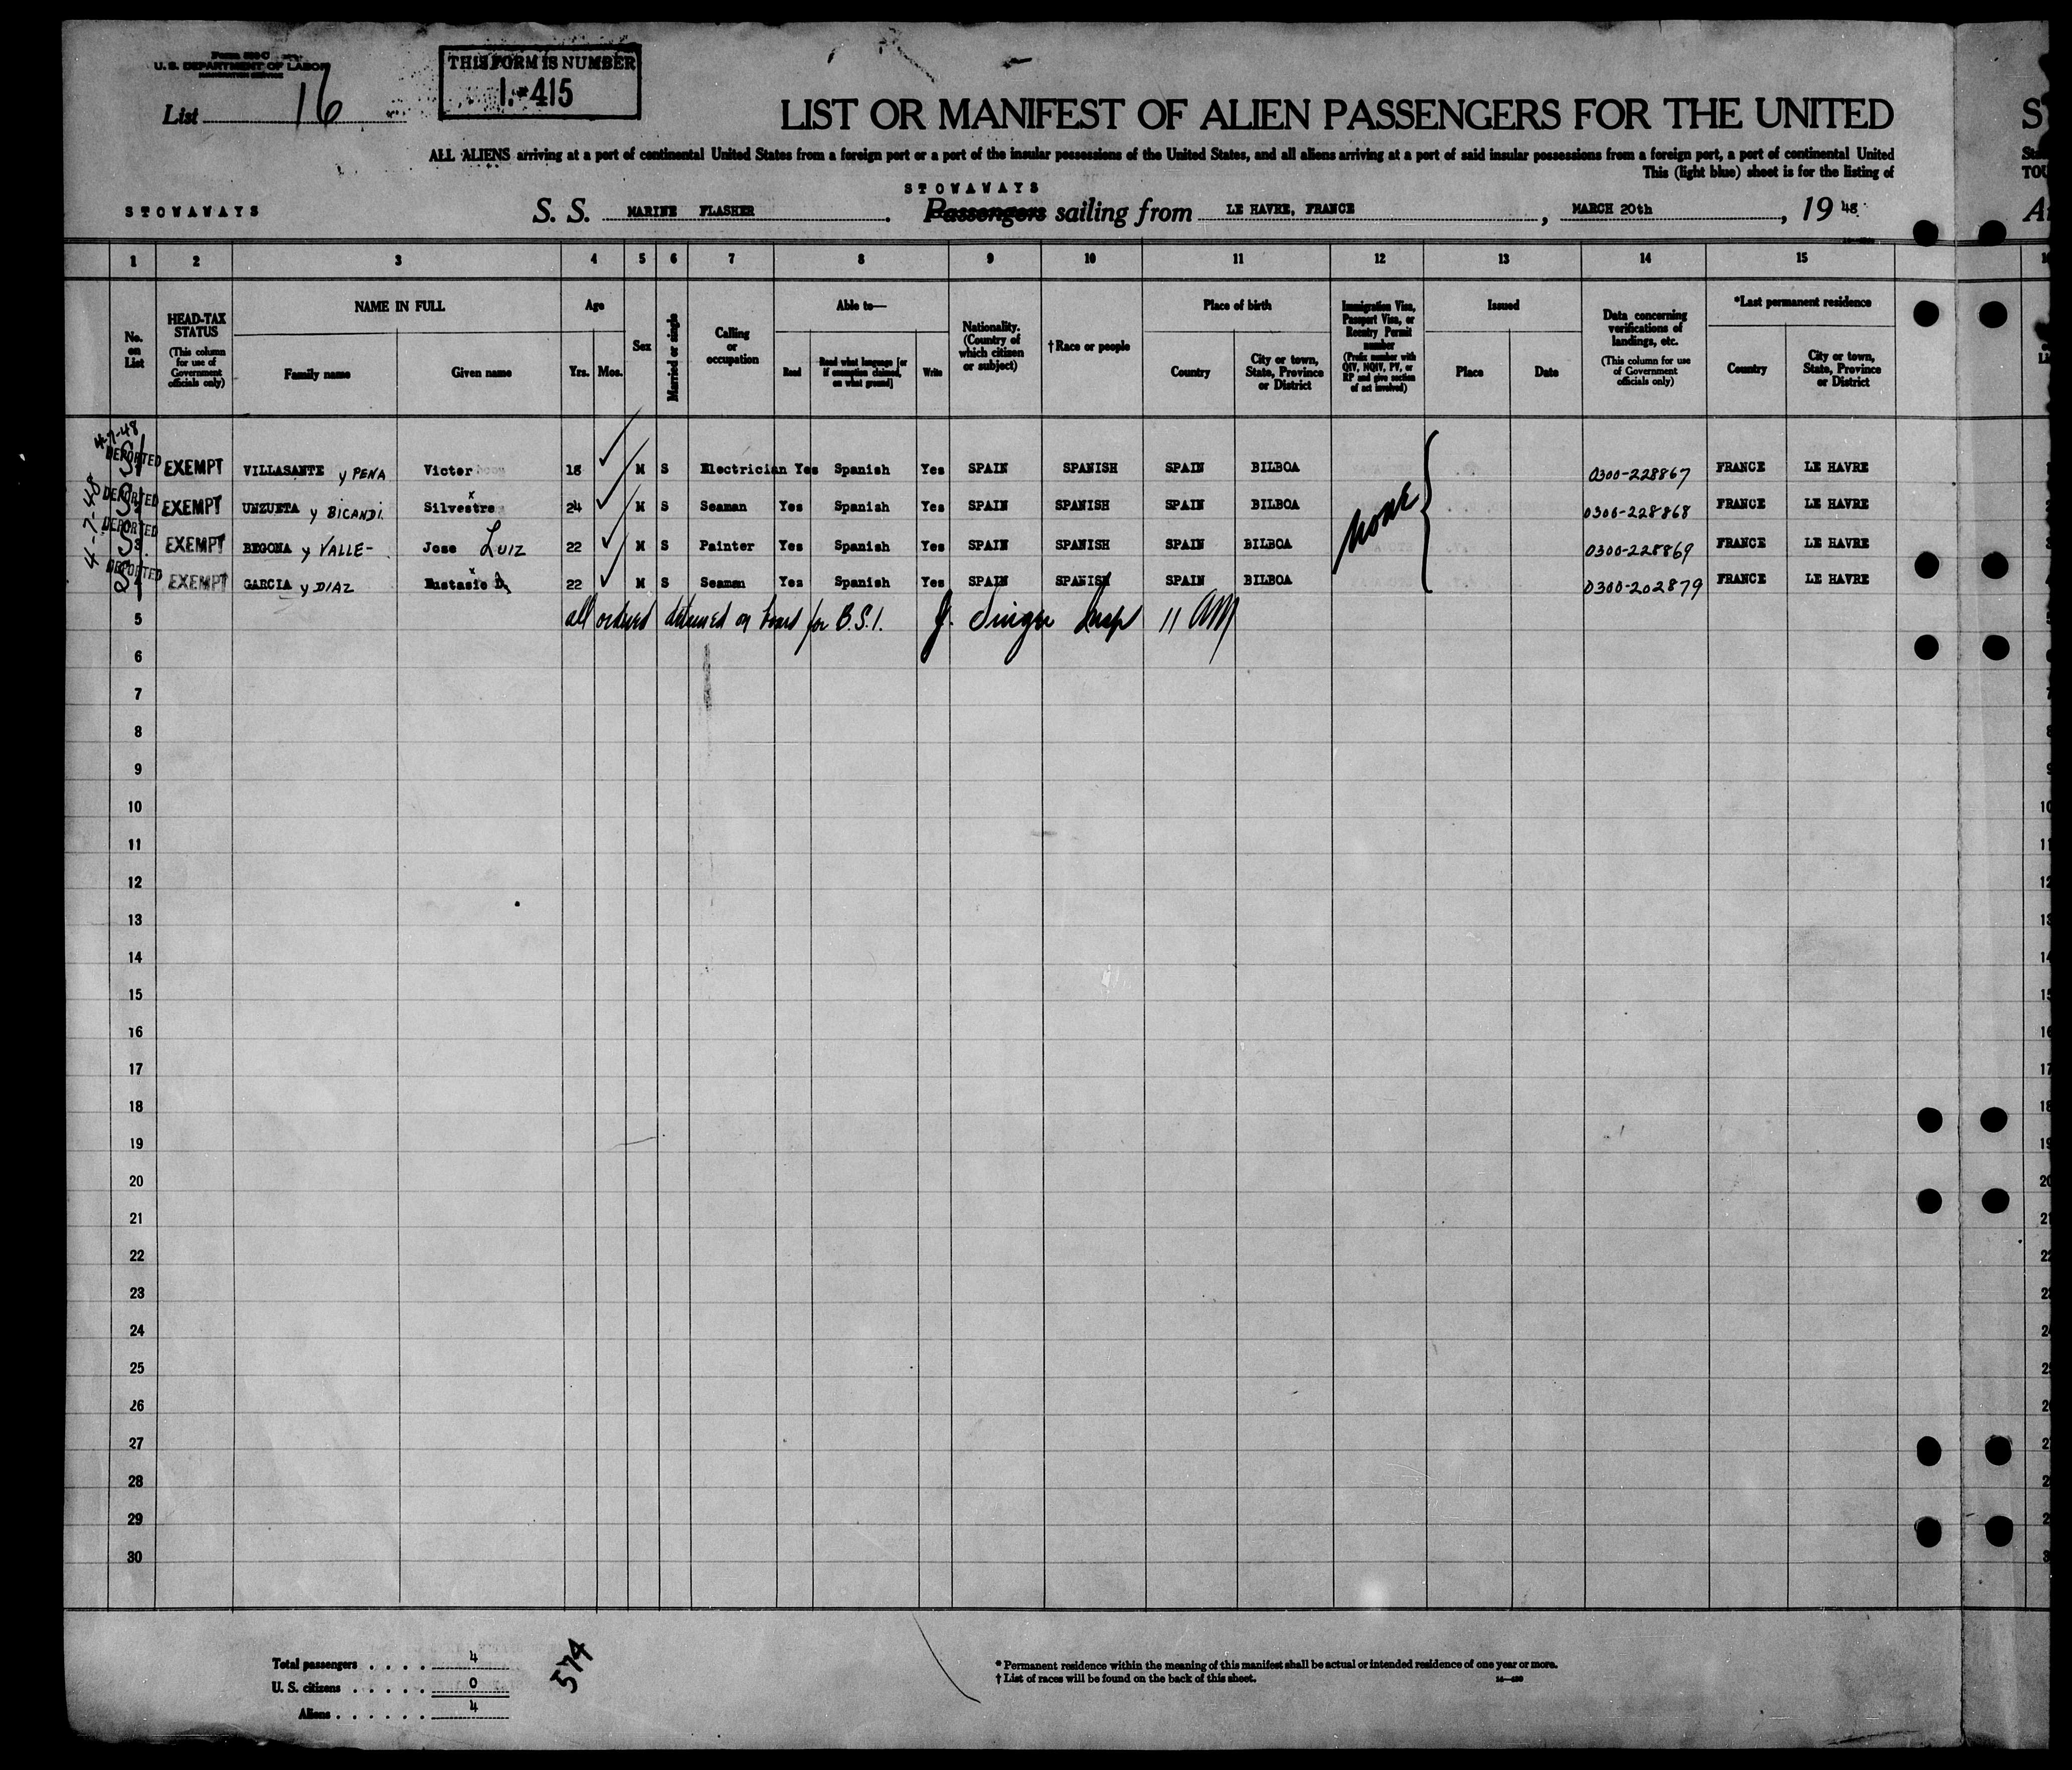 Form 500 C
U. S. DEPARTMENT OF LABOR
IMMIGRATION SERVICE
List 16
THIS FORM IS NUMBER
I-415
LIST OR MANIFEST OF ALIEN PASSENGERS FOR THE UNITED
S
ALL ALIENS arriving at a port of continental United States from a foreign port or a port of the insular possessions of the United States, and all aliens arriving at a port of said insular possessions from a foreign port, a port of continental United
This (light blue) sheet is for the listing of
STOWAWAYS
STOWAWAYS
S. S. MARINE FLASHER. Passengers sailing from LE HAVRE, FRANCE, MARCH 20th, 19 48
1 2 3 4 5 6 7 8 9 10 11 12 13 14 15
No. on List
HEAD-TAX STATUS (This column for use of Government officials only)
NAME IN FULL
Family name
Given name
Age
Yrs. Mos.
Sex
Married or single
Calling or occupation
Able to—
Read
Read what language [or if exemption claimed, on what ground]
Write
Nationality. (Country of which citizen or subject)
†Race or people
Place of birth
Country
City or town, State, Province or District
Immigration Visa, Passport Visa, or Reentry Permit number (Prefix number with QIV, NQIV, PV, or RP and give section of act involved)
Issued
Place
Date
Data concerning verifications of landings, etc. (This column for use of Government officials only)
*Last permanent residence
Country
City or town, State, Province or District
4-7-48
4-7-48
DEPORTED EXEMPT VILLASANTE y PENA Victor 18 M S Electrician Yes Spanish Yes SPAIN SPANISH SPAIN BILBOA 0300-228867 FRANCE LE HAVRE
DEPORTED EXEMPT UNZUETA y BICANDI. Silvestre 24 M S Seaman Yes Spanish Yes SPAIN SPANISH SPAIN BILBOA 0300-228868 FRANCE LE HAVRE
DEPORTED EXEMPT BEGONA y VALLE- Jose LUIZ 22 M S Painter Yes Spanish Yes SPAIN SPANISH SPAIN BILBOA 0300-228869 FRANCE LE HAVRE
DEPORTED EXEMPT GARCIA y DIAZ Eustasio D. 22 M S Seaman Yes Spanish Yes SPAIN SPANISH SPAIN BILBOA 0300-202879 FRANCE LE HAVRE
none
all ordered detained on board for B.S.I. J. Singer Insp 11 AM
5
6
7
8
9
10
11
12
13
14
15
16
17
18
19
20
21
22
23
24
25
26
27
28
29
30
Total passengers . . . . 4
U. S. citizens . . . . . 0
Aliens . . . . . . 4
574
* Permanent residence within the meaning of this manifest shall be actual or intended residence of one year or more.
† List of races will be found on the back of this sheet.